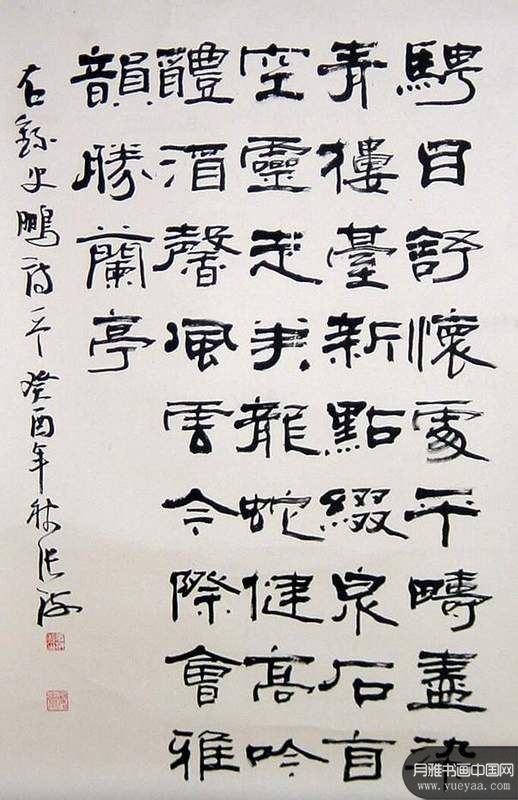 騁目舒懷處平疇盡染
青樓臺新點綴泉石自
空靈走筆龍蛇健高吟
醴酒馨風雲今際會雅
韻勝蘭亭
右錄史鵬詩一首癸酉年秋張海
月雅书画中国网
www.yueyaa.com